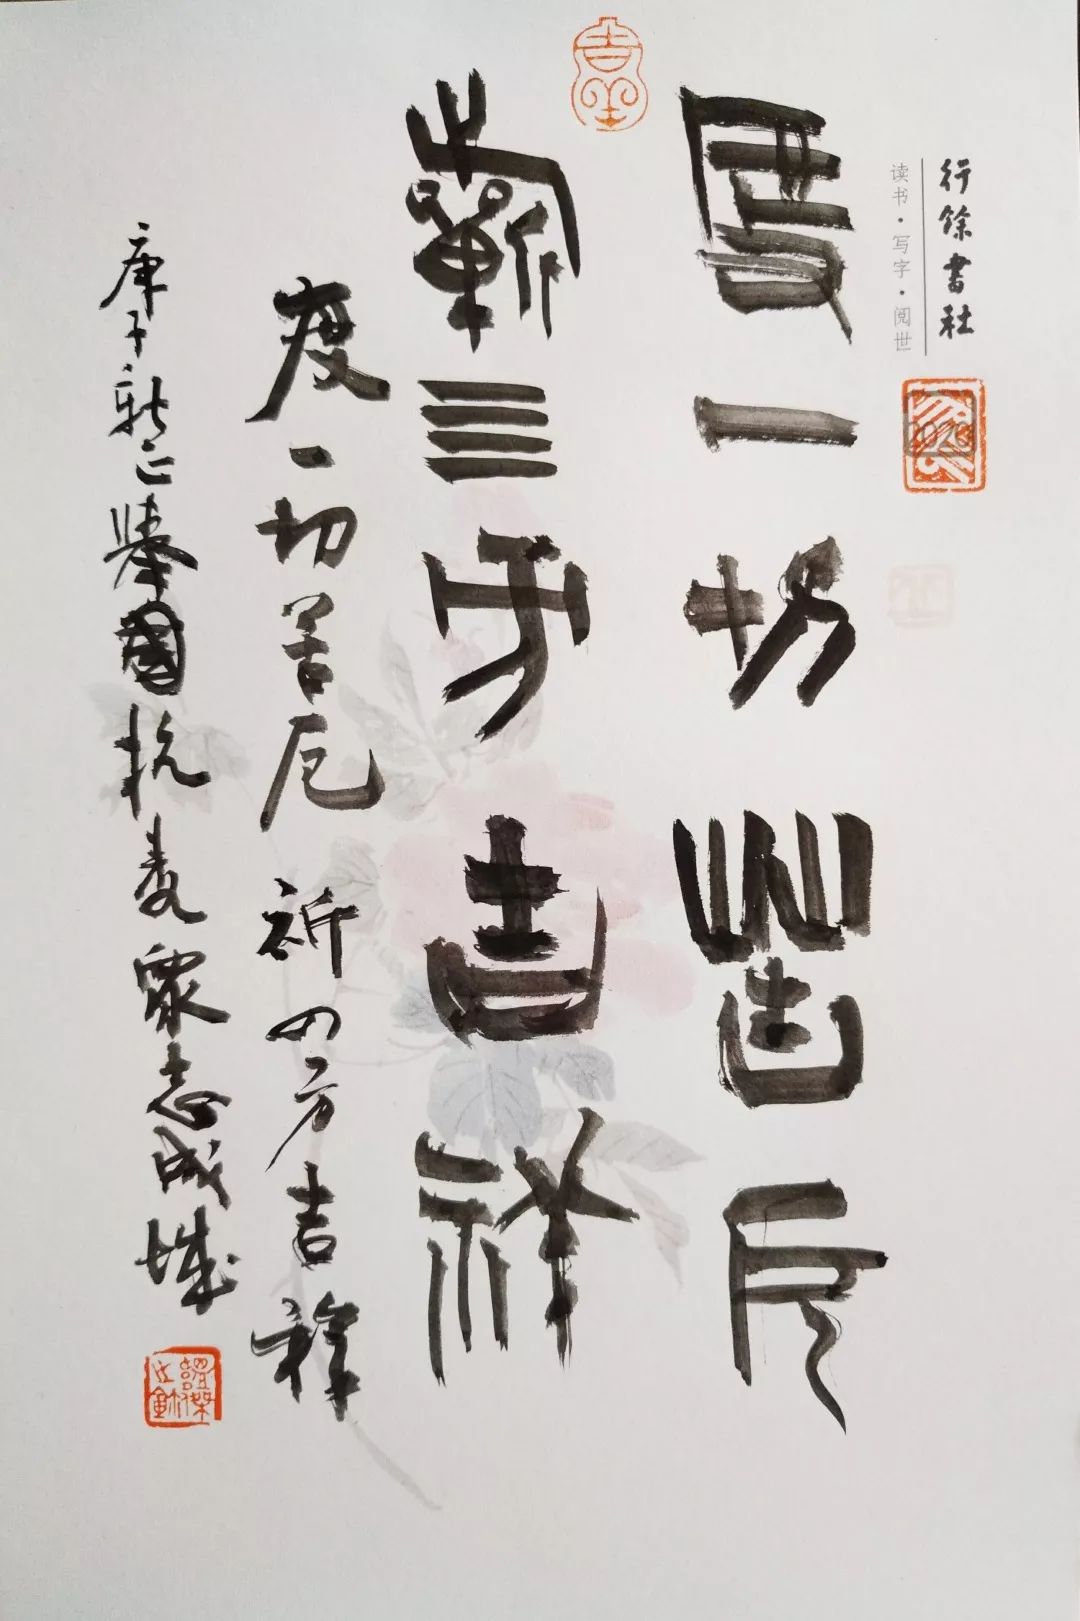 行馀書社
读书·写字·阅世
度一切苦厄
蘄三方吉祥
度一切苦厄 祈四方吉祥
庚子新正舉國抗毒眾志成城
吉